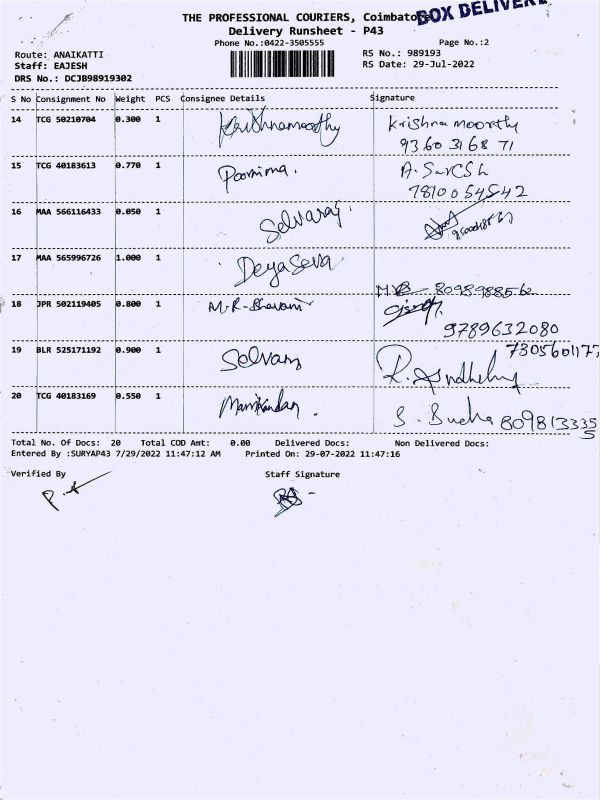 BOX DELIVERY
THE PROFESSIONAL COURIERS, Coimbatore
Delivery Runsheet - P43
Phone No.:0422-3505555 Page No.:2
Route: ANAIKATTI RS No.: 989193
Staff: EAJESH RS Date: 29-Jul-2022
DRS No.: DCJB98919302
S No Consignment No Weight PCS Consignee Details Signature
14 TCG 50210704 0.300 1 Krishnamoorthy Krishna moorthy
93603 168 71
15 TCG 40183613 0.770 1 Poornima. A. SurCSh
7810054542
16 MAA 566116433 0.050 1 Selvaraj.
17 MAA 565996726 1.000 1 DeyaSeva
8098988562
18 JPR 502119405 0.800 1 M.R-Bhavani
9789632080
19 BLR 525171192 0.900 1 Selvam 7305601177
R.
20 TCG 40183169 0.550 1 Manikandan. S. Budha 8098133355
Total No. Of Docs: 20 Total COD Amt: 0.00 Delivered Docs: Non Delivered Docs:
Entered By :SURYAP43 7/29/2022 11:47:12 AM Printed On: 29-07-2022 11:47:16
Verified By Staff Signature